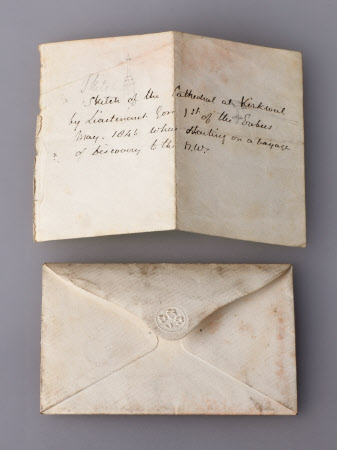 The
Sketch of the Cathedral at Kirkwall
by Lieutenant Gore 1st of the Erebus
May. 1845 when starting on a voyage
of discovery to the N.W.